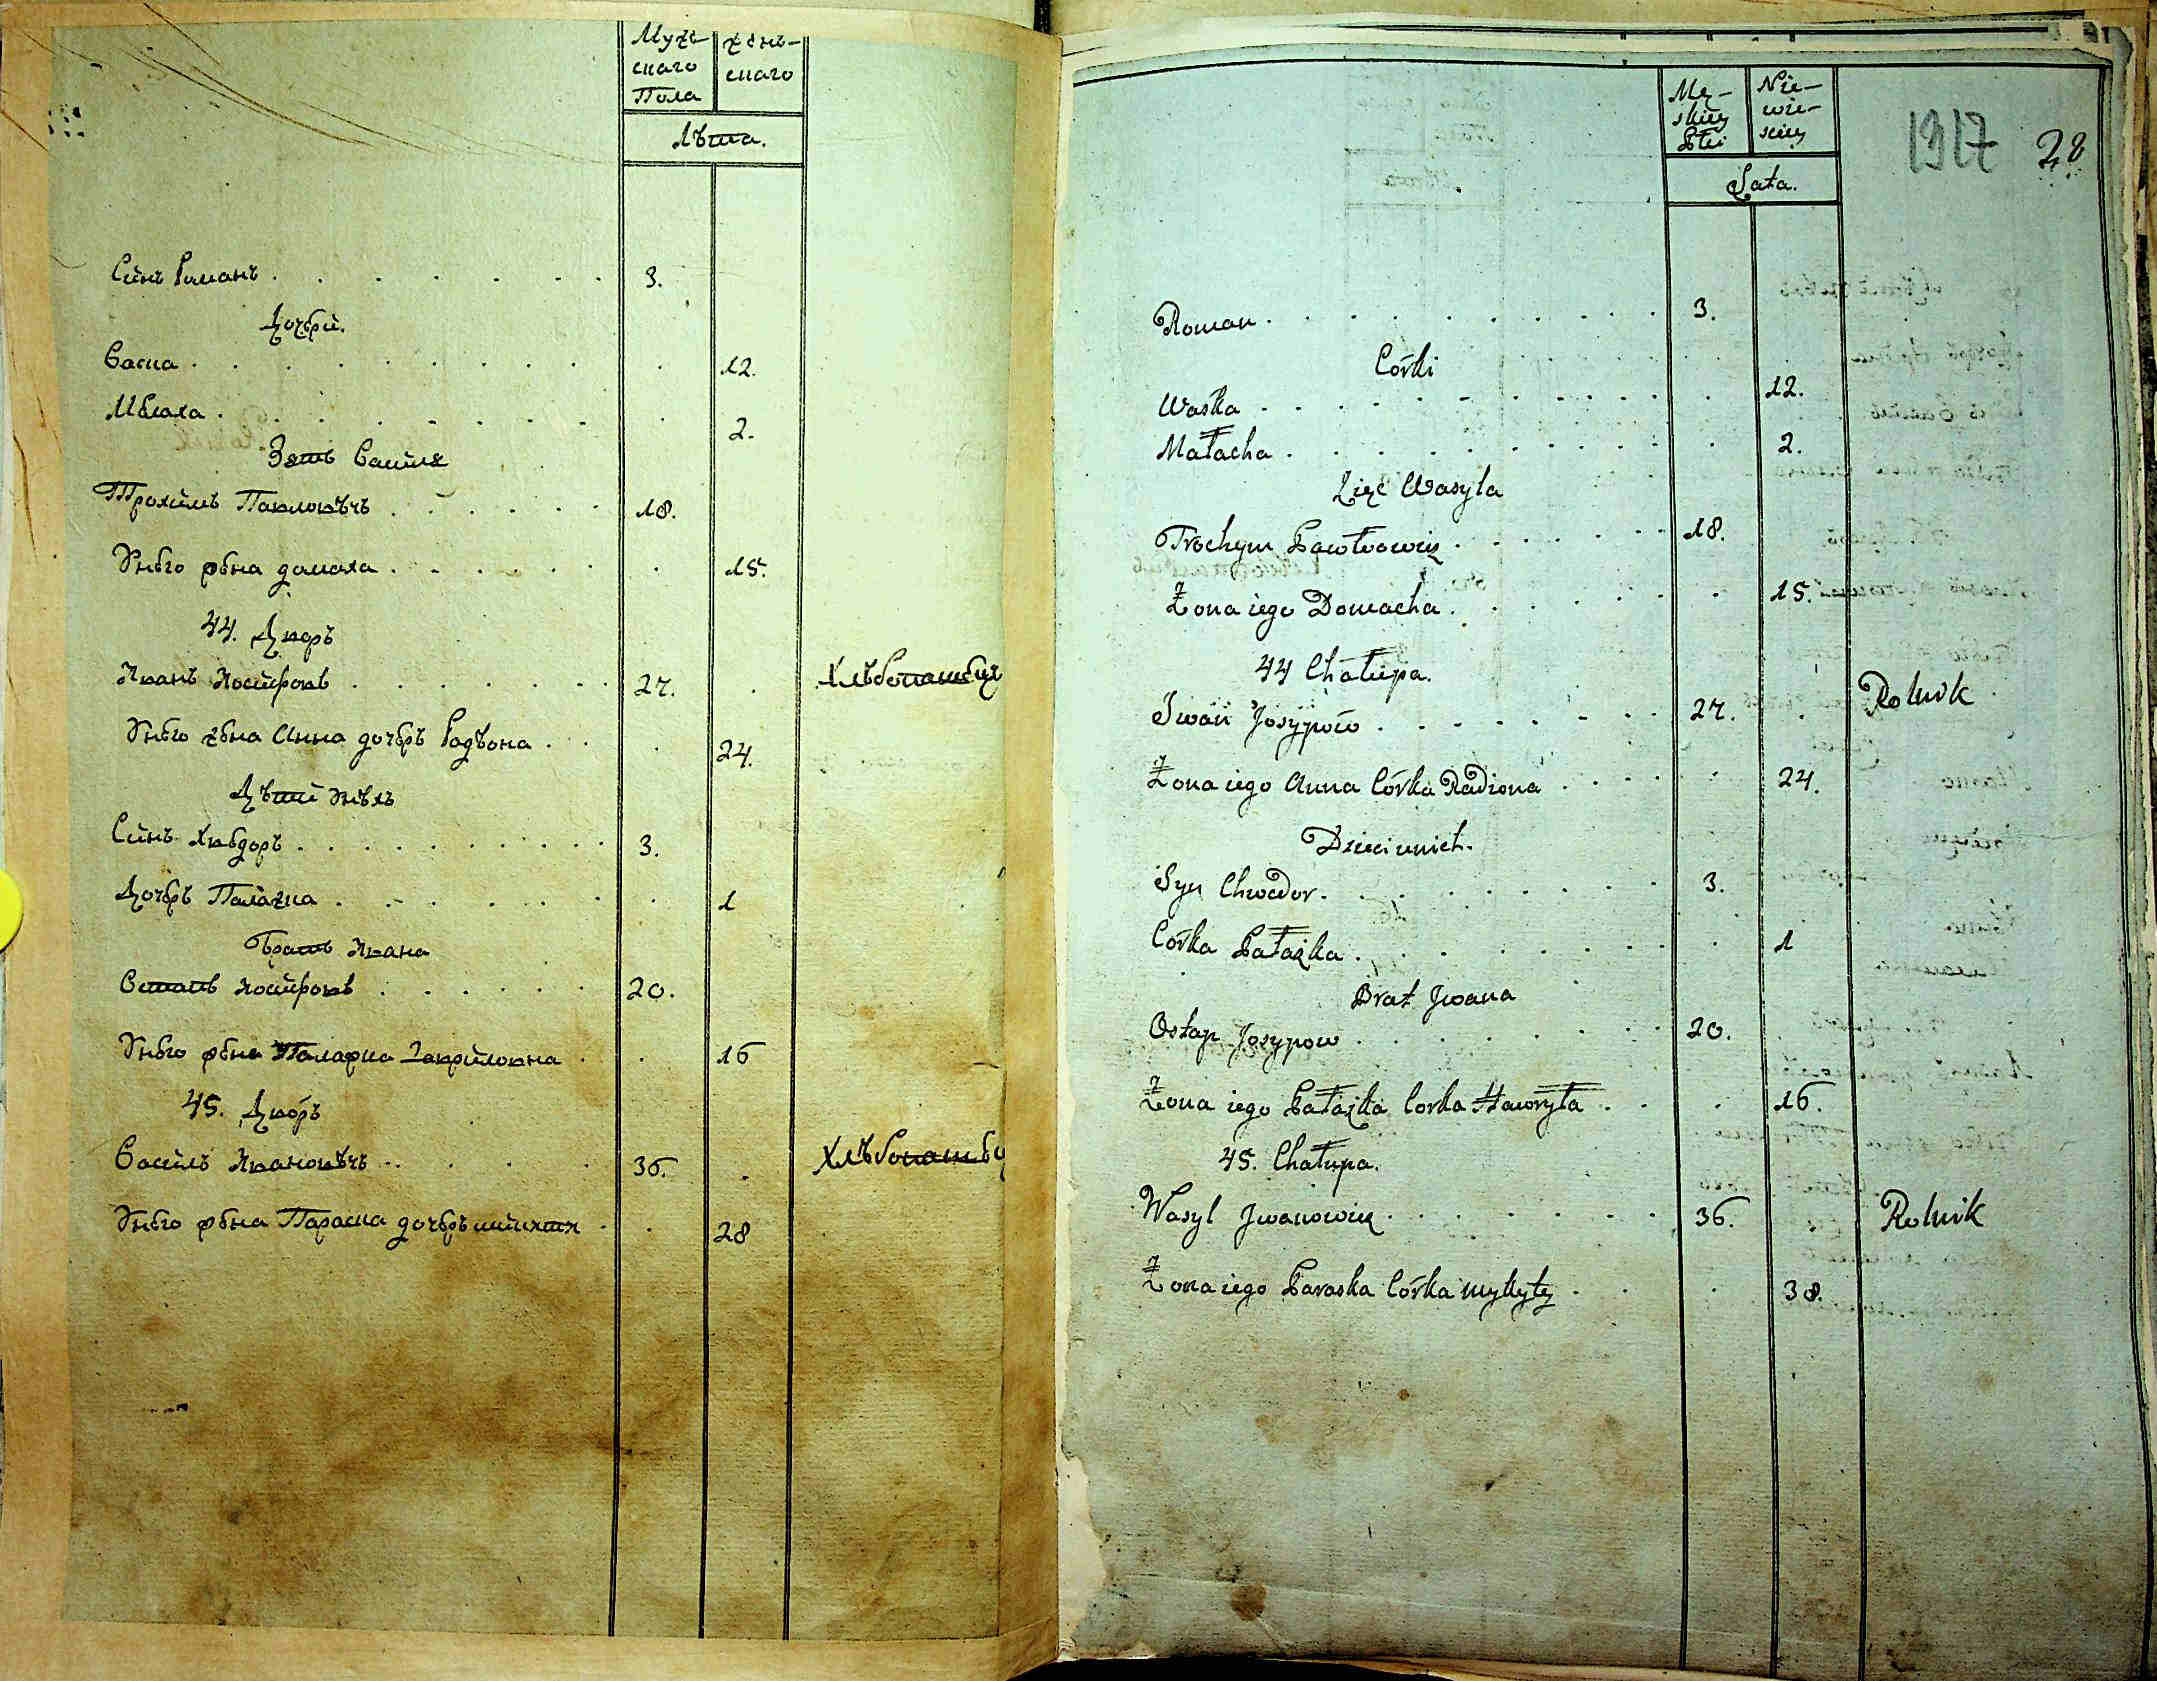 Муже-
скаго
Пола
жень-
скаго
лѣта.
Синъ Романъ . . . . . . . 3.
Дочери.
Васка . . . . . . . . . 12.
Мелаха . . . . . . . . 2.
Зять Василя
Трохимъ Павловѣчъ . . . . . . 18.
жена домаха . . . . . . . 15.
44. Дворъ
Иванъ Иосиповъ . . . . . . . 27. . Хлѣбопашец
жена Анна дочерь Радѣона . . . 24.
Дѣти
Синъ Хведоръ . . . . . . . . . . 3.
Дочерь Палажка . . . . . . . 1
Братъ Ивана
Остапъ Иосиповъ . . . . . . 20.
жена Палажка Гавриловна . . 16
45. Дворъ
Василъ Ивановѣчъ . . . . 36. . Хлѣбопашец
жена Параска дочерь микити . . 28
Mę-
skiey
Płci
Nie-
wie-
sciey
1917 28
Lata.
Roman . . . . . . . . . . 3.
Córki
Waska . . . . . . . . . . 12.
Małacha . . . . . . . . . 2.
Zięć Wasyla
Trochym Pawłowicz . . . . . . 18.
Żona iego Domacha . . . . . . . 15.
44 Chałupa.
Iwan Josypow . . . . . . . . 27. . Rolnik
Żona iego Anna Córka Radiona . . . . 24.
Dzieci u nich.
Syn Chwedor . . . . . . . . . 3.
Córka Pałażka . . . . . . . . 1
Brat Jwana
Ostap Josypow . . . . . . . 20.
Żona iego Pałażka Corka Hawryła . . . 16.
45. Chałupa.
Wasyl Jwanowicz . . . . . . . . 36. . Rolnik
Żona iego Paraska Córka Mykyty . . . 38.